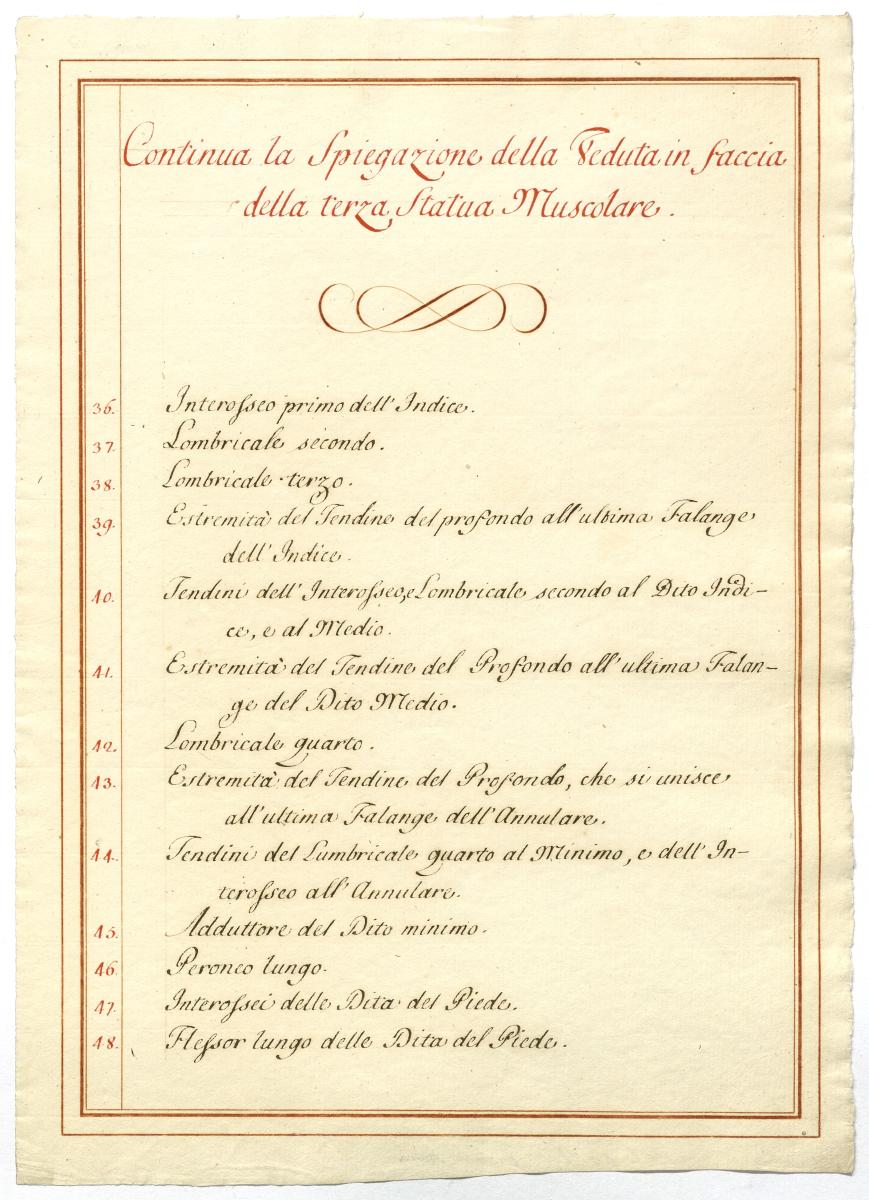 Continua la Spiegazione della Veduta in faccia
della terza Statua Muscolare.
36. Interosseo primo dell'Indice.
37. Lombricale secondo.
38. Lombricale terzo.
39. Estremità del Tendine del profondo all'ultima Falange
dell'Indice.
40. Tendini dell'Interosseo, e Lombricale secondo al Dito Indi-
ce, e al Medio.
41. Estremità del Tendine del Profondo all'ultima Falan-
ge del Dito Medio.
42. Lombricale quarto.
43. Estremità del Tendine del Profondo, che si unisce
all'ultima Falange dell'Annulare.
44. Tendini del Lumbricale quarto al Minimo, e dell'In-
terosseo all'Annulare.
45. Adduttore del Dito minimo.
46. Peroneo lungo.
47. Interossei delle Dita del Piede.
48. Flessor lungo delle Dita del Piede.